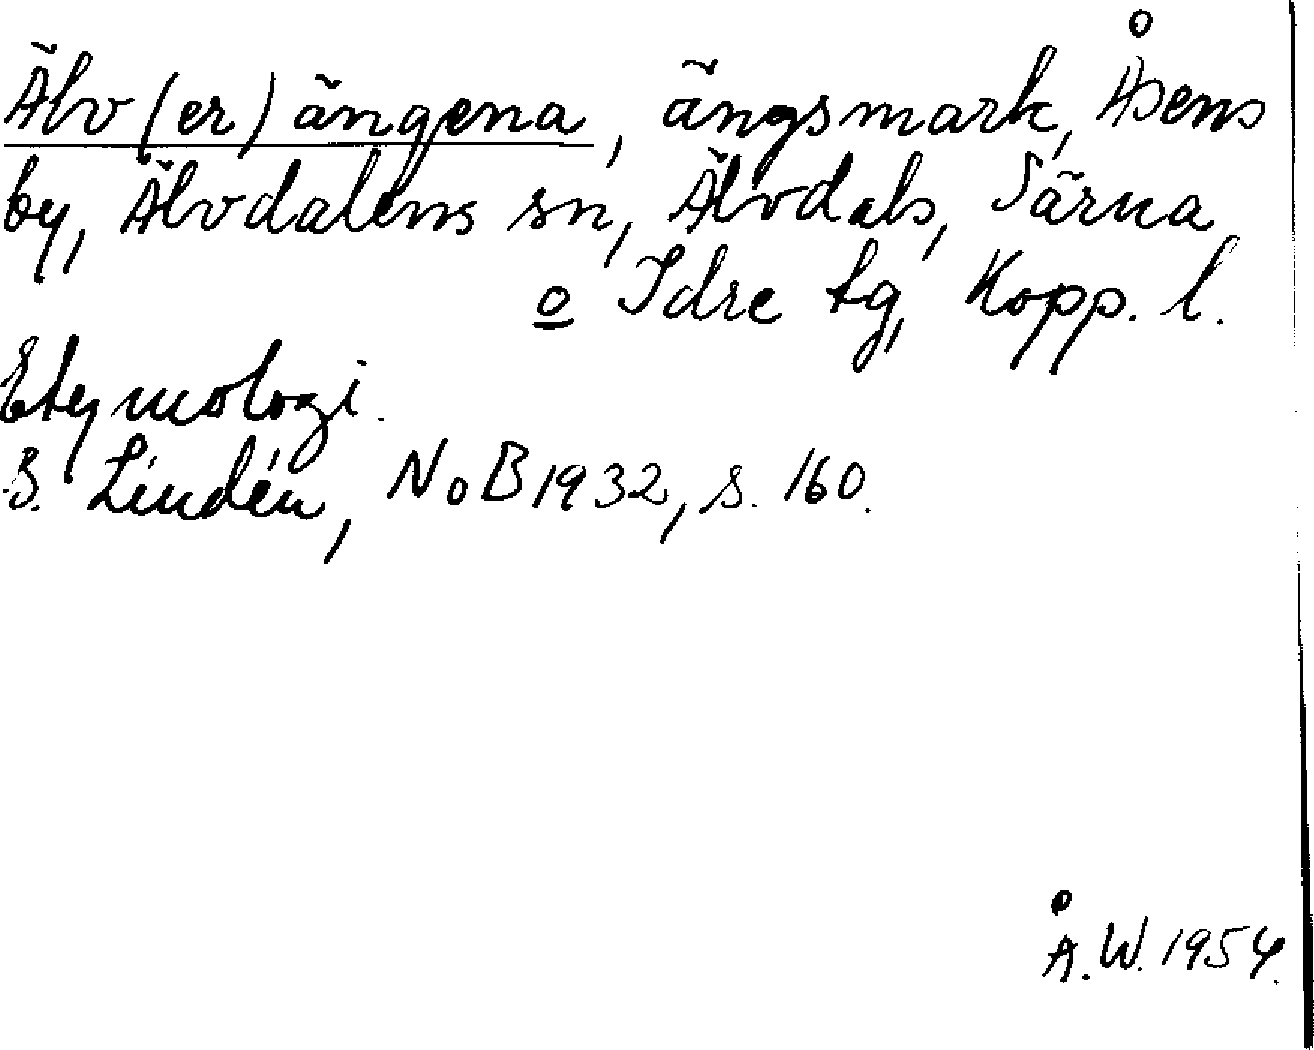 Älv(er)ängena, ängsmark, Åsens
by, Älvdalens sn, Älvdals, Särna
o Idre tg, Kopp. l.
Etymologi.
B. Lindén, NoB 1932, s. 160.
Å. W. 1954.